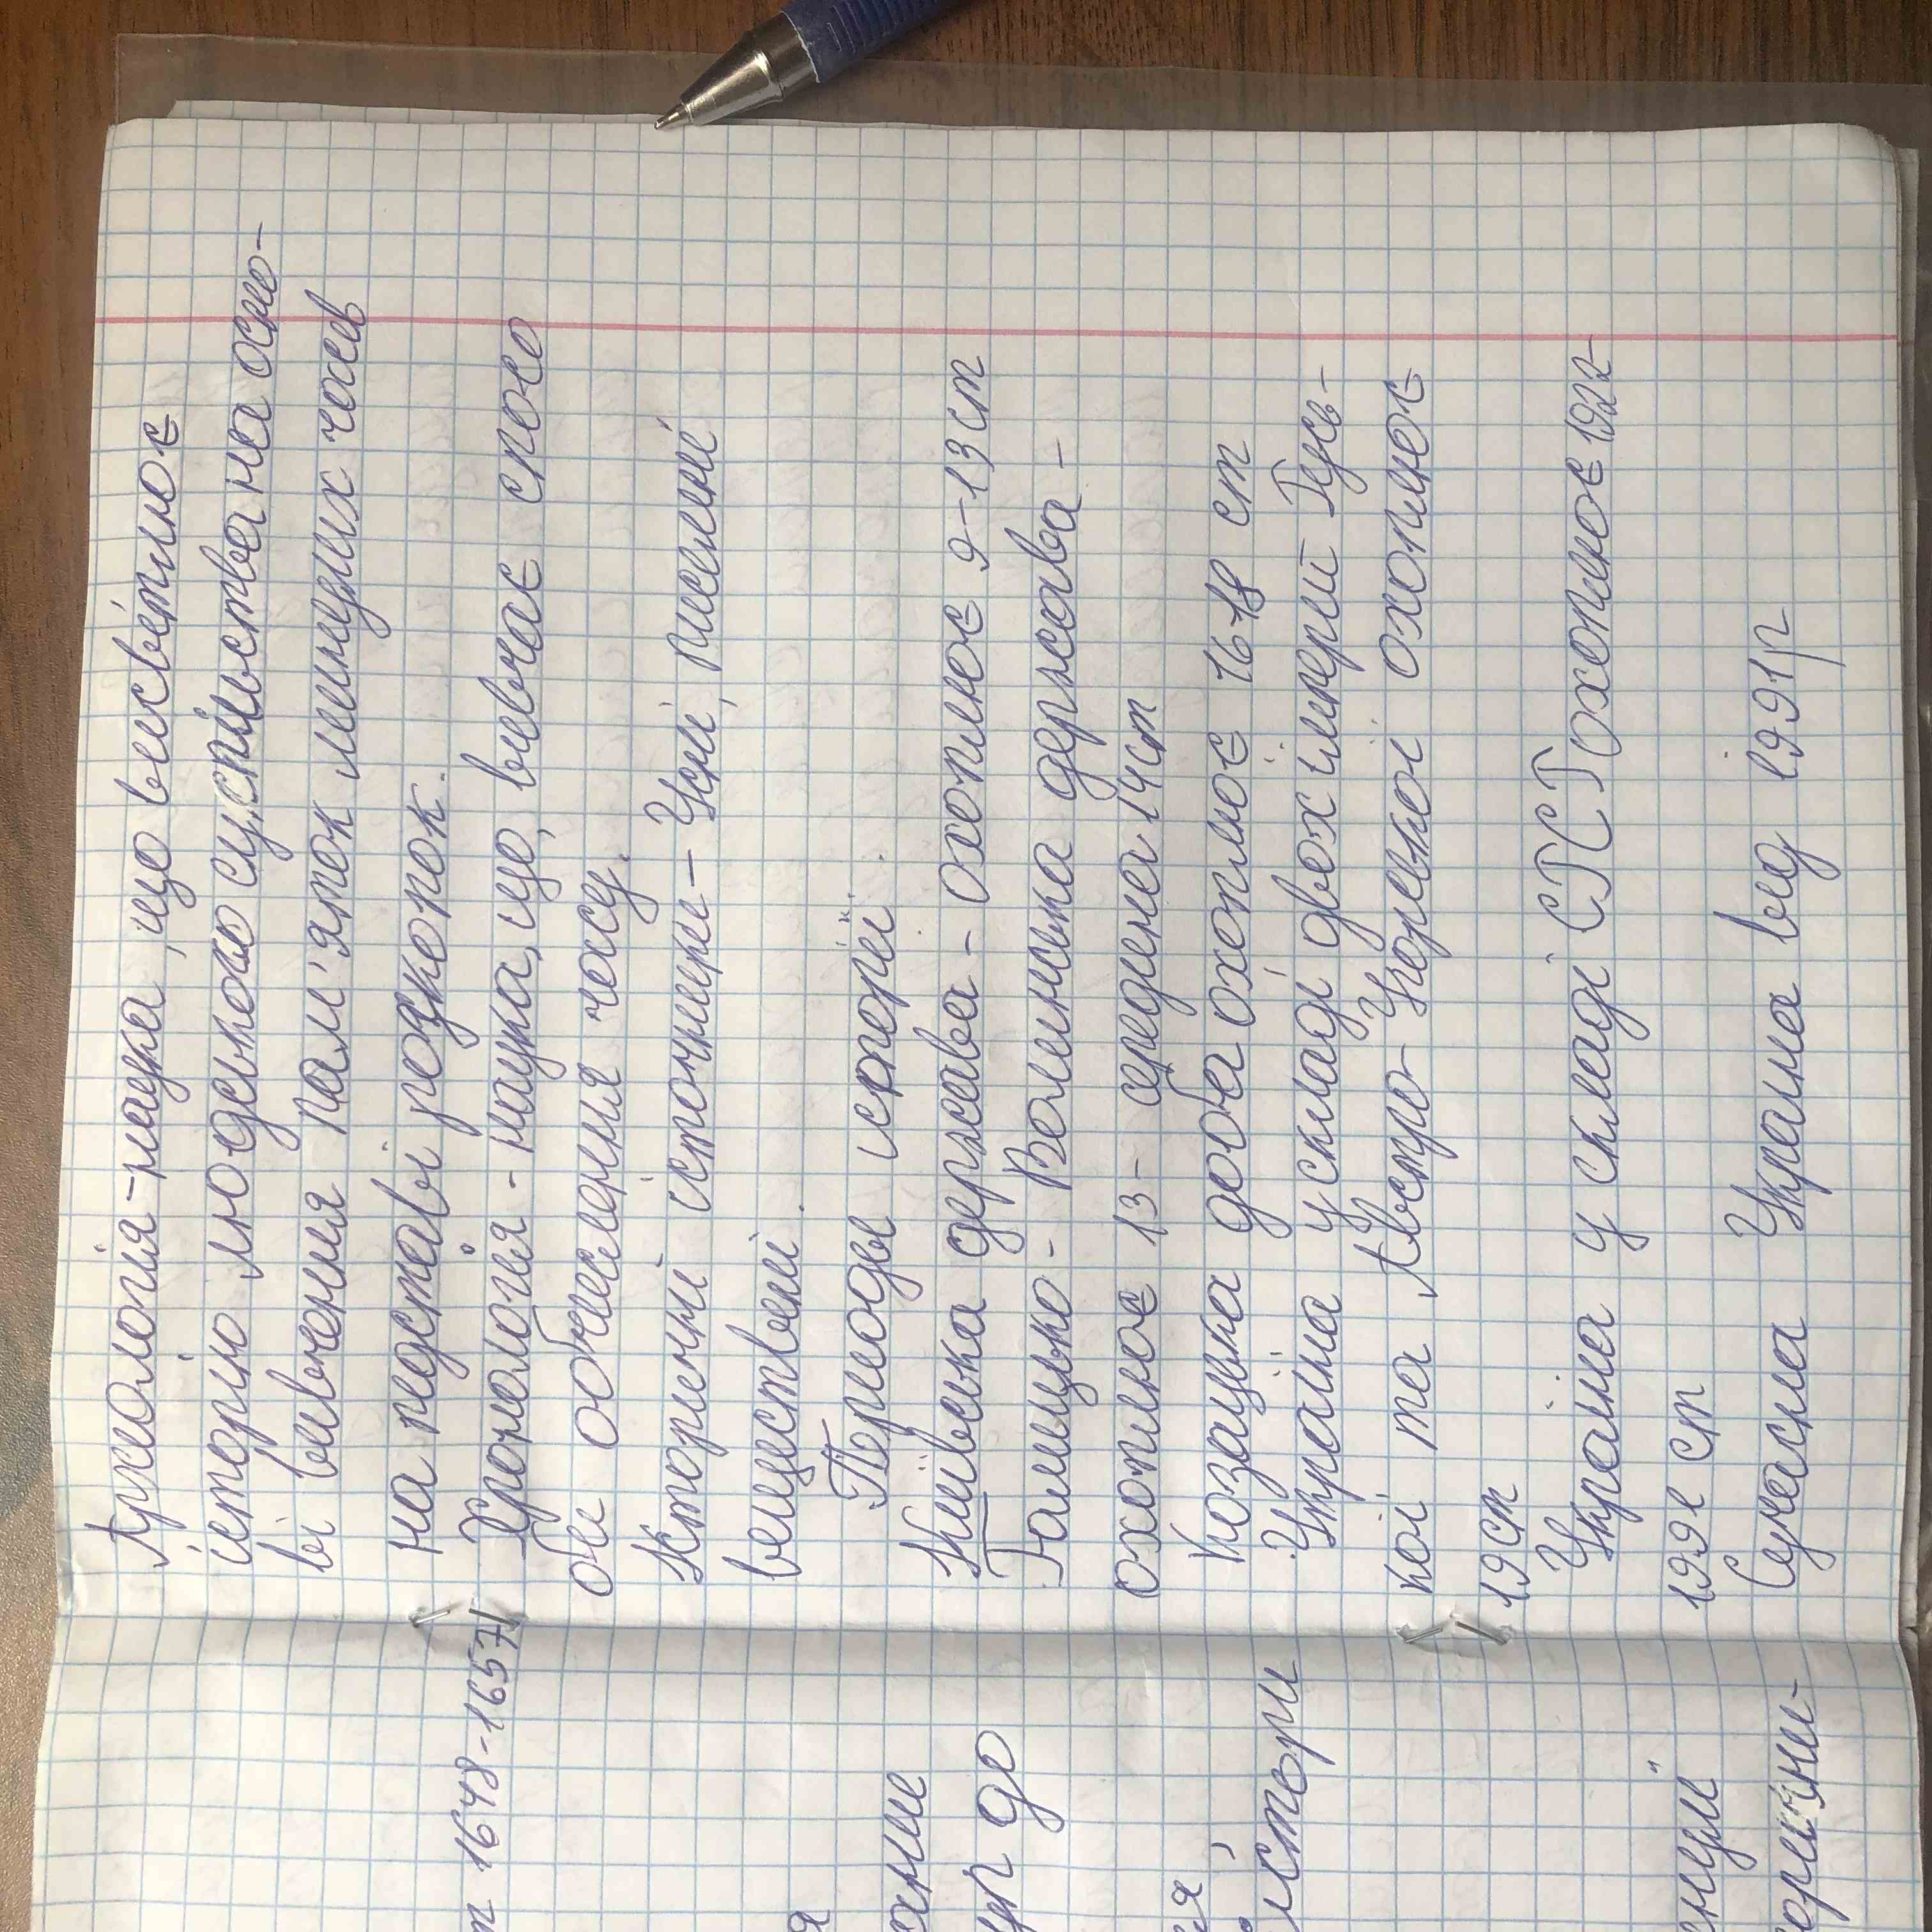 Археологія-наука, що висвітлює
історію людського суспільства на осно-
ві вивчення пам'яток минулих часів
на підставі розкопок.
Хронологія - наука, що, вивчає спосо
би обчислення часу.
Історичні источники - Усні, писемні
вещиствені.
Периоды історії.
Київська держава - охоплює 9-13 ст
Галицько - Волинська держава -
охоплює 13 - середина 14 ст
Козацка доба охоплює 16-18 ст
Україна у складі двох імперий Русь-
кої та Австро-Угорської охоплює
19 ст
Україна у складі СРСР охоплює 1922-
1991 ст
Сучасна Украина від 1991р
1648-1657
до
історії